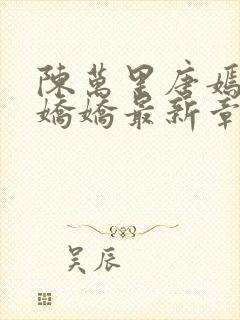 陳萬里唐嫣
嬌嬌最新章
吴辰